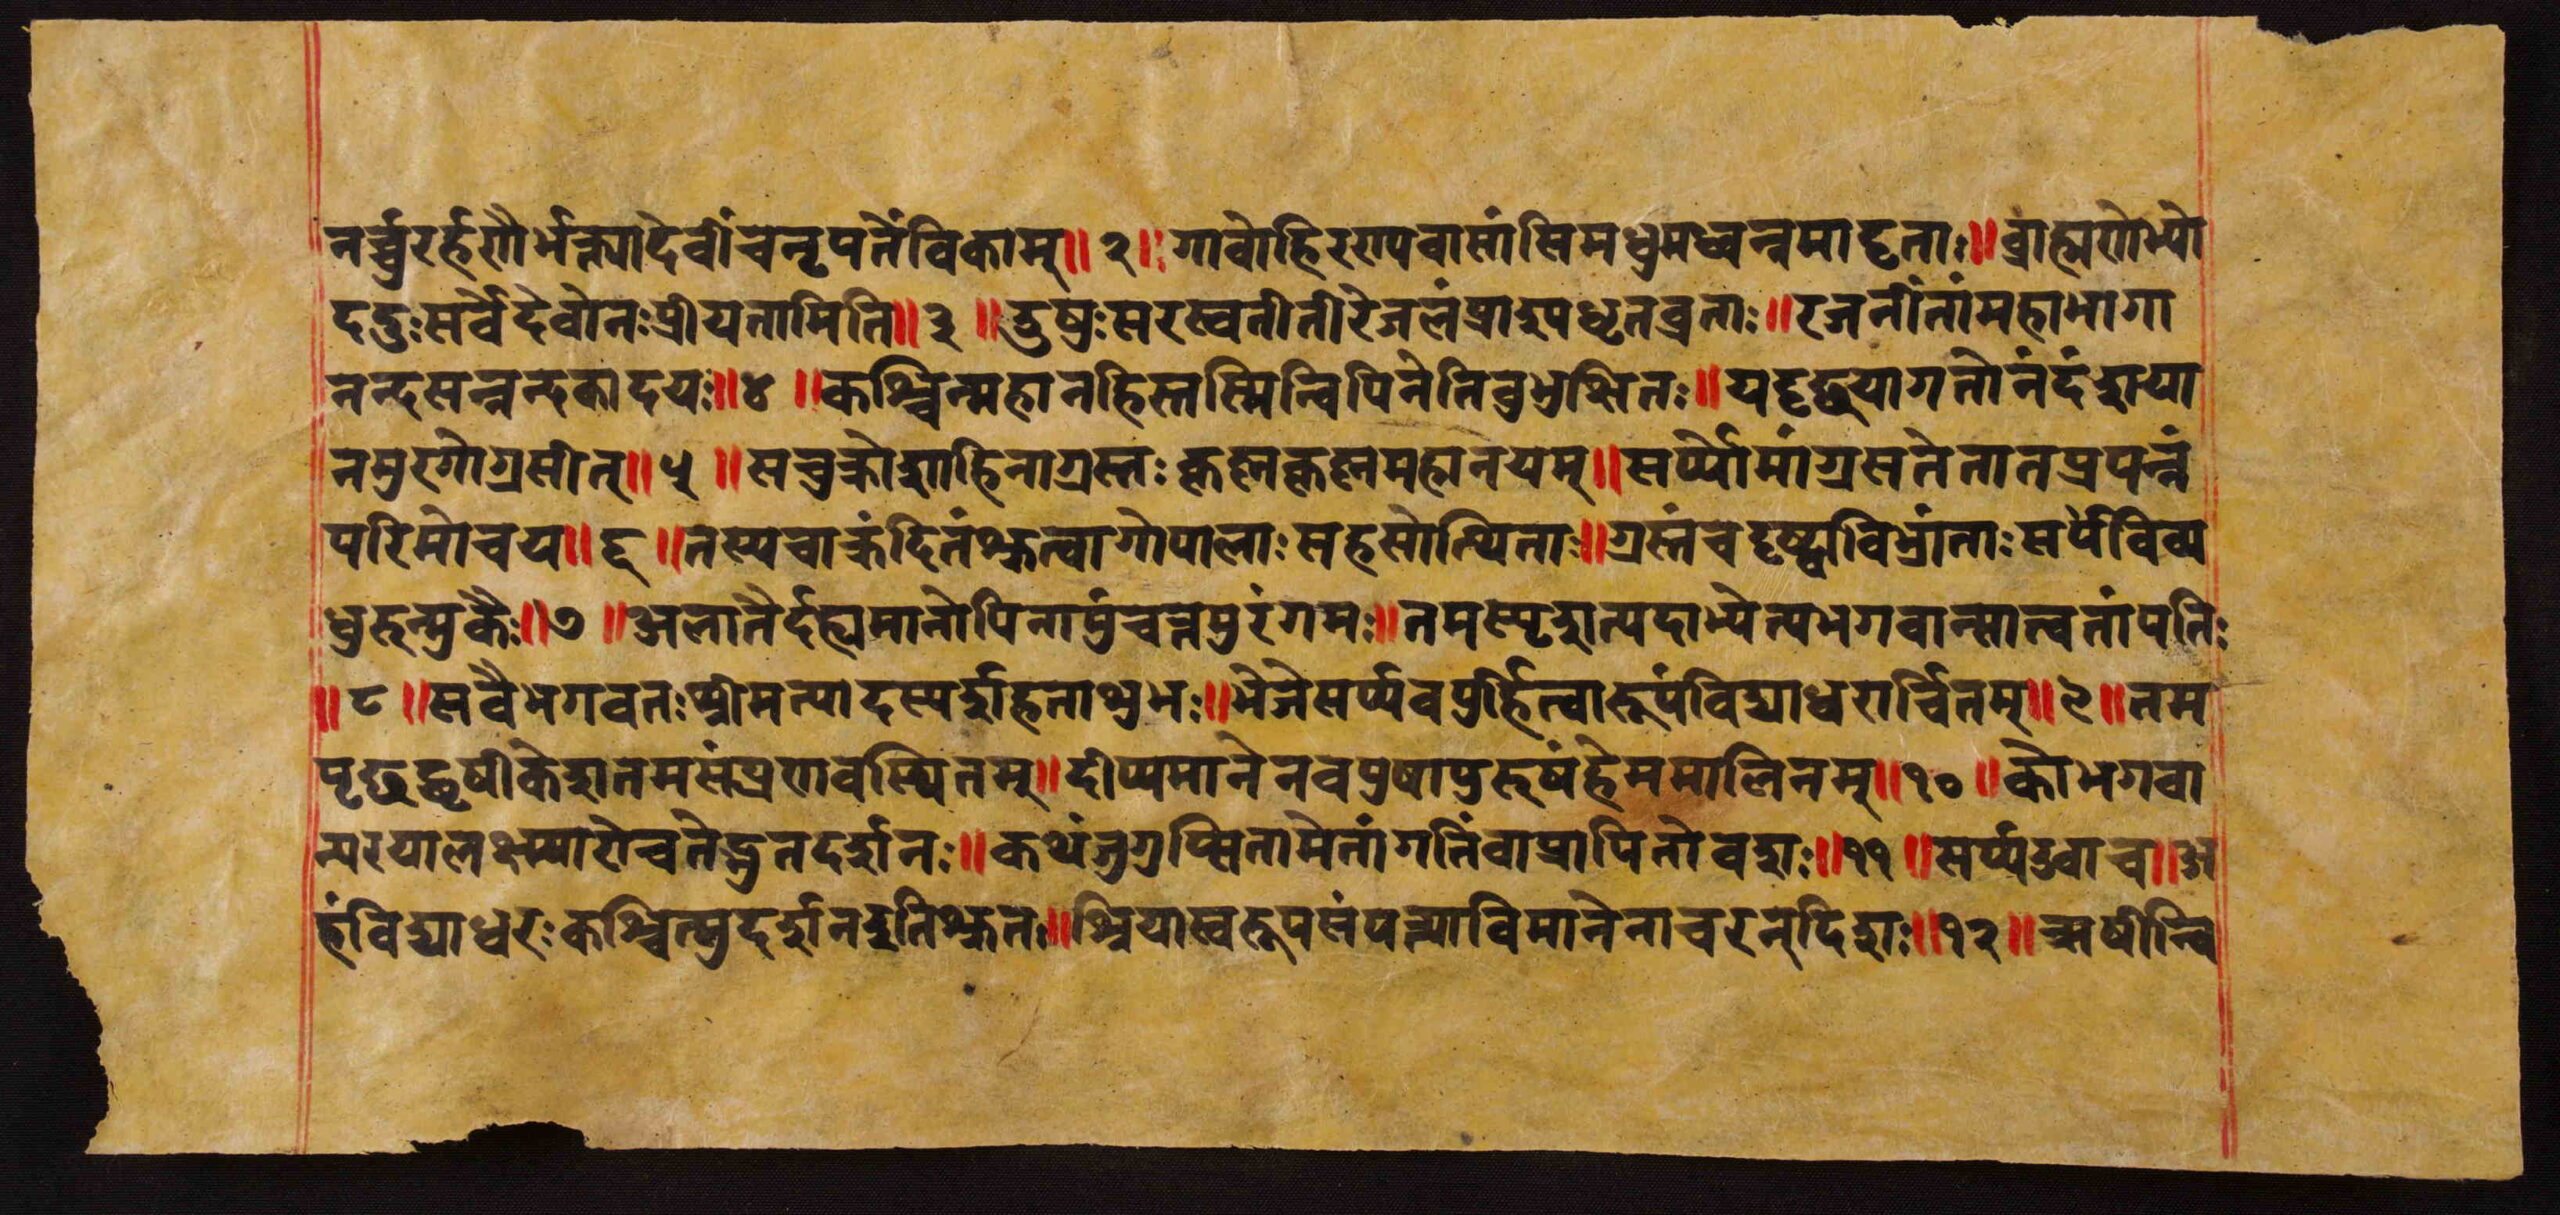 नर्च्चुरर्हणैर्भक्त्या देवीं च नृपतेंविकाम्॥ २॥ गावो हिरण्यवासांसि मधुमध्वन्नमादृताः॥ ब्राह्मणेभ्यो
ददुः सर्वे देवो नः प्रीयतामिति॥ ३॥ ऊषुः सरस्वतीतीरे जलं प्राश्य धृतव्रताः॥ रजनीं तां महाभागा
नन्दसन्नन्दकादयः॥ ४॥ कश्चिन्महानहिस्तस्मिन्विपिनेतिबुभुक्षितः॥ यदृच्छयागतो नंदं शया
नमुरगोग्रसीत्॥ ५॥ स चुक्रोशाहिना ग्रस्तः कृष्ण कृष्ण महानयम्॥ सर्प्पो मां ग्रसते तात प्रपन्नं
परिमोचय॥ ६॥ तस्य चाक्रंदितं श्रुत्वा गोपालाः सहसोत्थिताः॥ ग्रस्तं च दृष्ट्वा विभ्रांताः सर्पं विव्य
धुरुल्मुकैः॥ ७॥ अलातैर्दह्यमानोपि नामुंचत्तमुरंगमः॥ तमस्पृशत्पदाभ्येत्य भगवान्सात्वतां पतिः
॥ ८॥ स वै भगवतः श्रीमत्पादस्पर्शहताशुभः॥ भेजे सर्प्पवपुर्हित्वा रूपं विद्याधरार्चितम्॥ ९॥ तम
पृच्छद्धृषीकेशः तमसं प्रणवस्थितम्॥ दीप्यमानेन वपुषा पुरूषं हेममालिनम्॥ १०॥ को भगवा
न्परया लक्ष्म्या रोचतेद्भुतदर्शनः॥ कथं जुगुप्सितामेतां गतिं वा प्रापितोवशः॥ ११॥ सर्प्प उवाच॥ अ
हं विद्याधरः कश्चित्सुदर्शन इति श्रुतः॥ श्रिया स्वरूपसंपत्त्या विमानेनाचरन्दिशः॥ १२॥ ऋषीन्वि